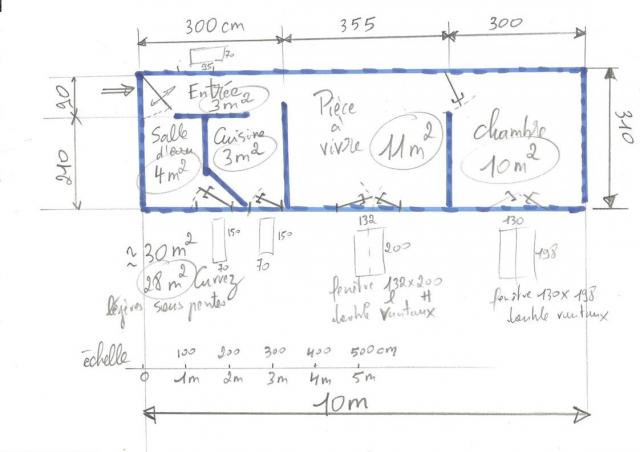 300cm 355 300
70
95
Entrée
3m²
90
210
Salle
d'eau
4m²
Cuisine
3m²
Pièce
à
vivre
11m²
chambre
10m²
310
150
70
150
70
132
200
130
198
≈ 30m²
28m² Carrez
légères sous pentes
fenêtre 132x200
double vantaux
fenêtre 130x198
double vantaux
échelle
100 200 300 400 500cm
0 1m 2m 3m 4m 5m
10m